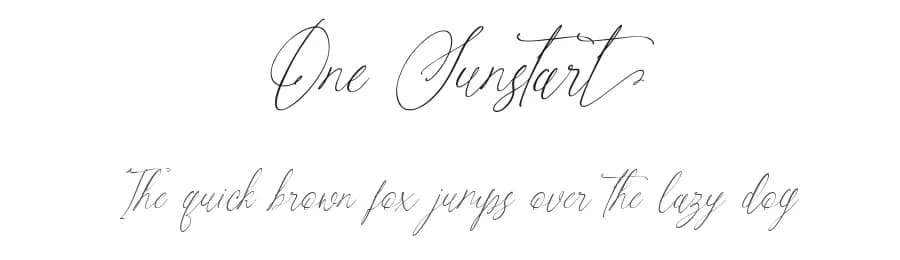 One Sunstart
The quick brown fox jumps over the lazy dog